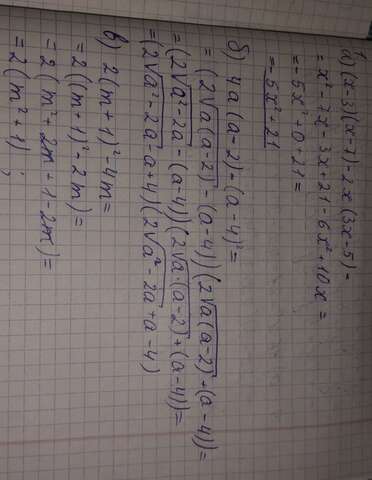 1
а) (x-3)(x-7)-2x(3x-5)=
= x²-7x-3x+21-6x²+10x=
= -5x²+0+21=
= -5x²+21
б) 4a(a-2)-(a-4)²=
= (2√a(a-2)-(a-4))(2√a(a-2)+(a-4))=
= (2√a²-2a-(a-4))(2√a·(a-2)+(a-4))=
= (2√a-2a-a+4)(2√a²-2a+a-4)
в) 2(m+1)²-4m=
= 2((m+1)²-2m)=
= 2(m²+2m+1-2m)=
= 2(m²+1);